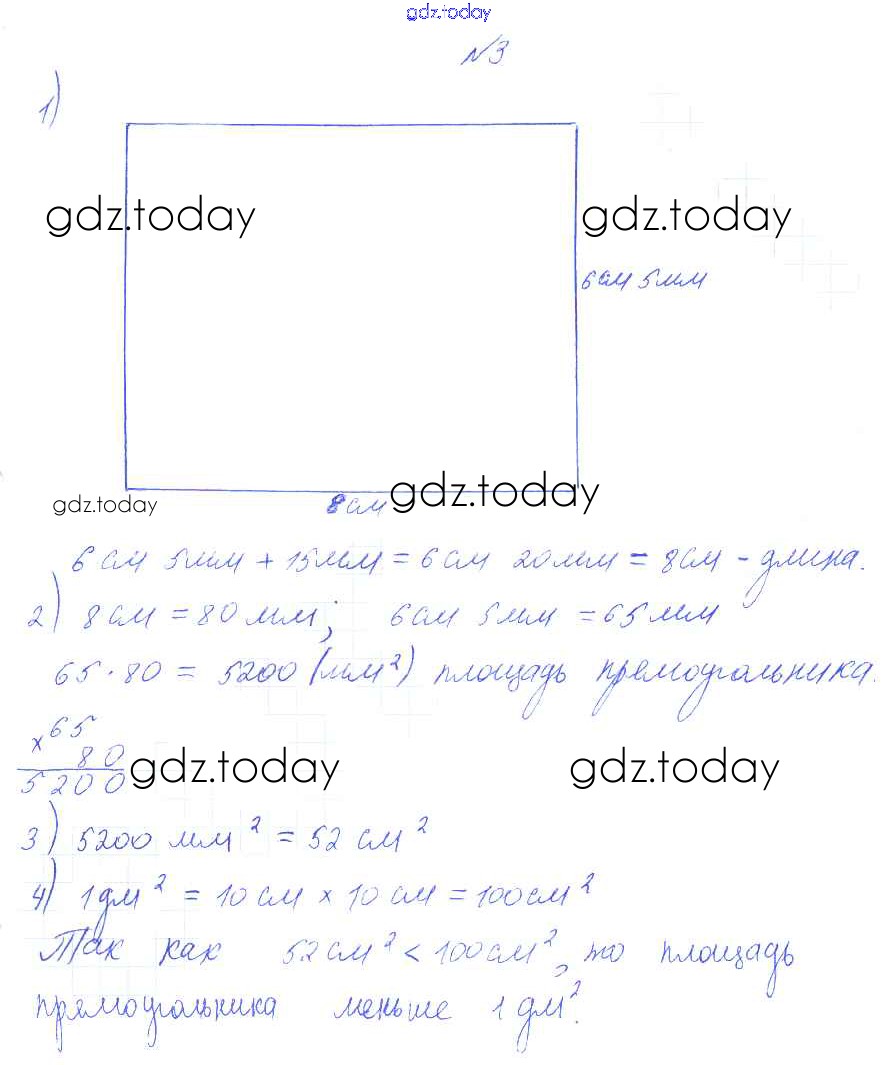 gdz.today
№3
1)
gdz.today gdz.today
6см 5мм
gdz.today 8см gdz.today
6 см 5мм + 15мм = 6см 20мм = 8см - длина.
2) 8см = 80 мм; 6см 5мм = 65мм
65 · 80 = 5200 (мм²) площадь прямоугольника.
× 65
80
5200 gdz.today gdz.today
3) 5200 мм² = 52 см²
4) 1дм² = 10 см × 10 см = 100см²
Так как 52см² < 100см², то площадь
прямоугольника меньше 1 дм².